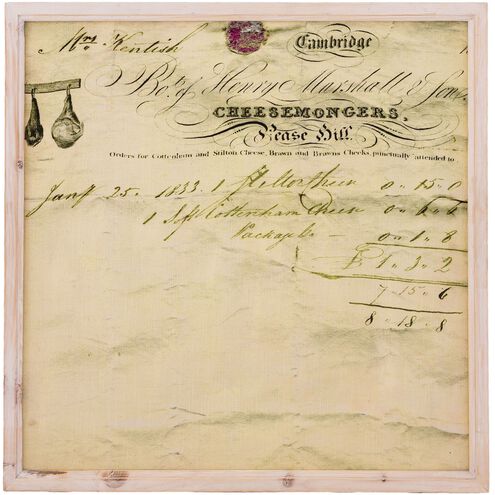 Mrs. Kentish
Cambridge
Bot. of Henry Marshall & Sons
CHEESEMONGERS,
Pease Hill.
Orders for Cottenham and Stilton Cheese, Brawn and Brawns Cheeks, punctually attended to
Jany 25. 1833. 1 Stilton Cheese 0 " 15 " 0
1 Soft Cottenham Cheese 0 " 6 " 6
Package &c — 0 " 1 " 8
£ 1 " 3 " 2
7 " 15 " 6
8 " 18 " 8